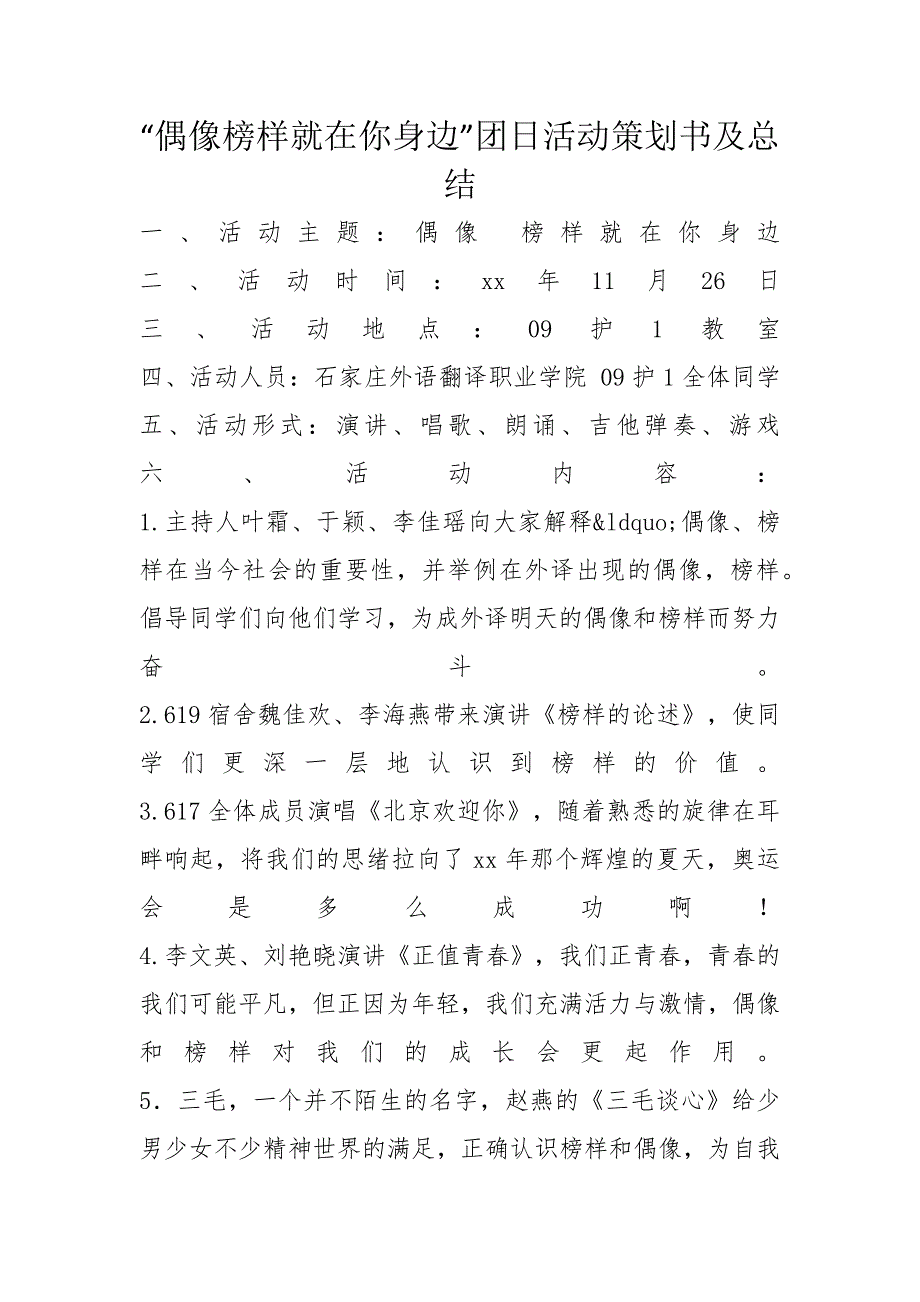 “偶像榜样就在你身边”团日活动策划书及总
结
一、活动主题：偶像 榜样就在你身边
二、活动时间：xx 年 11 月 26 日
三、活动地点：09 护 1 教室
四、活动人员：石家庄外语翻译职业学院 09 护 1 全体同学
五、活动形式：演讲、唱歌、朗诵、吉他弹奏、游戏
六、活动内容：
1.主持人叶霜、于颖、李佳瑶向大家解释&ldquo;偶像、榜
样在当今社会的重要性，并举例在外译出现的偶像，榜样。
倡导同学们向他们学习，为成外译明天的偶像和榜样而努力
奋斗。
2.619 宿舍魏佳欢、李海燕带来演讲《榜样的论述》，使同
学们更深一层地认识到榜样的价值。
3.617 全体成员演唱《北京欢迎你》，随着熟悉的旋律在耳
畔响起，将我们的思绪拉向了 xx 年那个辉煌的夏天，奥运
会是多么成功啊！
4.李文英、刘艳晓演讲《正值青春》，我们正青春，青春的
我们可能平凡，但正因为年轻，我们充满活力与激情，偶像
和榜样对我们的成长会更起作用。
5．三毛，一个并不陌生的名字，赵燕的《三毛谈心》给少
男少女不少精神世界的满足，正确认识榜样和偶像，为自我